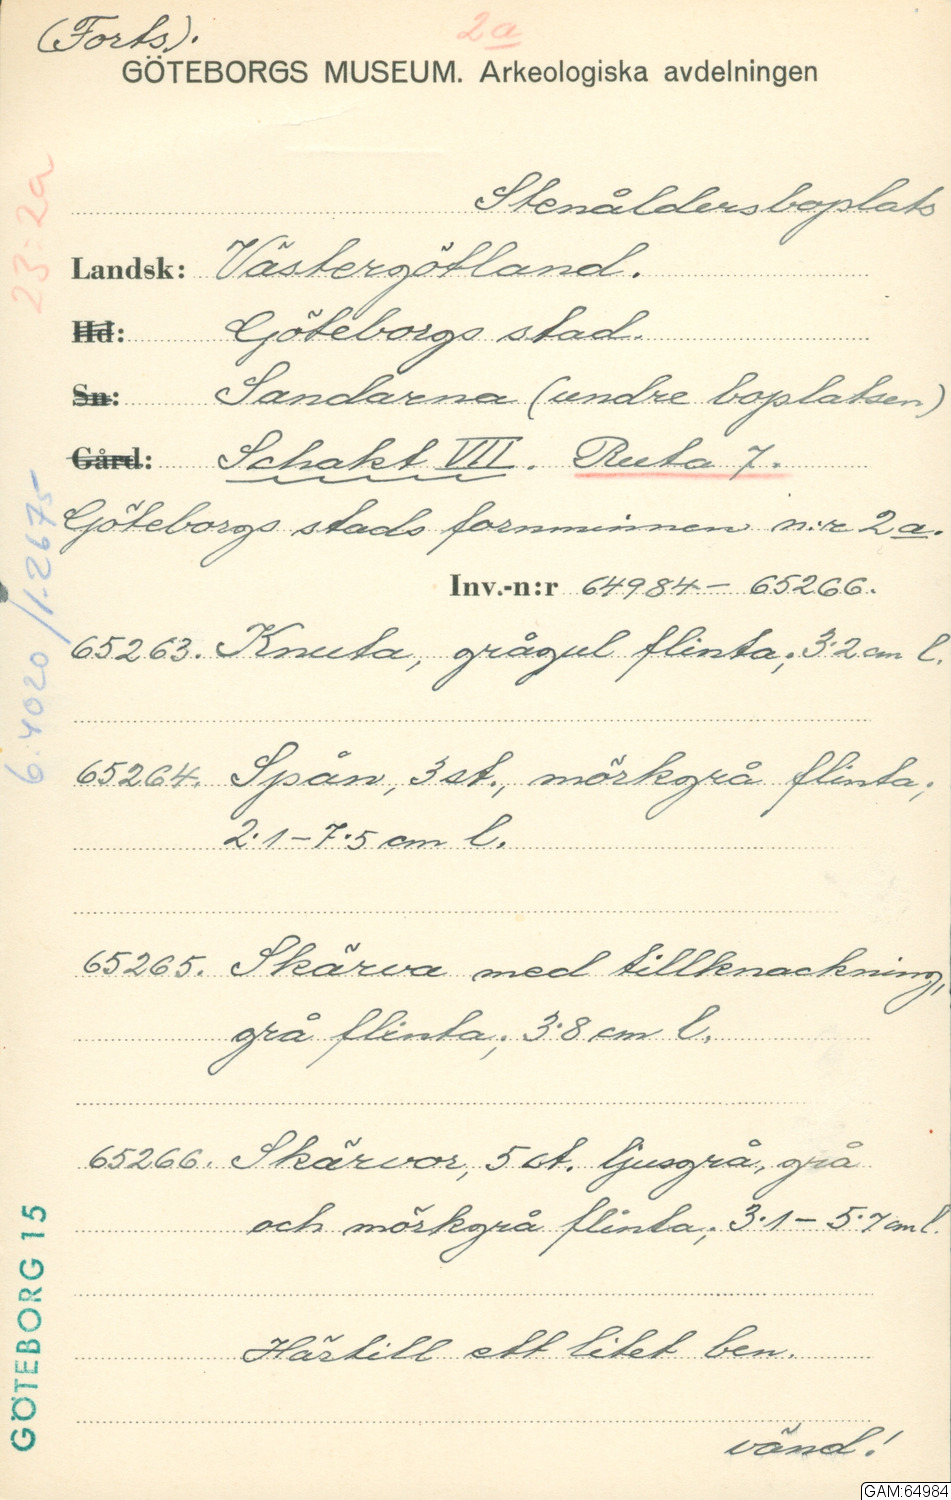 (Forts).
2a
GÖTEBORGS MUSEUM. Arkeologiska avdelningen
Stenåldersboplats
Landsk: Västergötland.
Hd: Göteborgs stad.
Sn: Sandarna (undre boplatsen)
Gård: Schakt VII. Ruta 7.
Göteborgs stads fornminnen n:r 2a.
Inv.-n:r 64984 – 65266.
65263. Knuta, grågul flinta; 3·2 cm l.
65264. Spån, 3 st., mörkgrå flinta;
2·1 – 7·5 cm l.
65265. Skärva med tillknackning,
grå flinta; 3·8 cm l.
65266. Skärvor, 5 st. ljusgrå, grå
och mörkgrå flinta; 3·1 – 5·7 cm l.
Härtill ett litet ben.
vänd!
23:2a
6:4020/1-2675
GÖTEBORG 15
GAM:64984